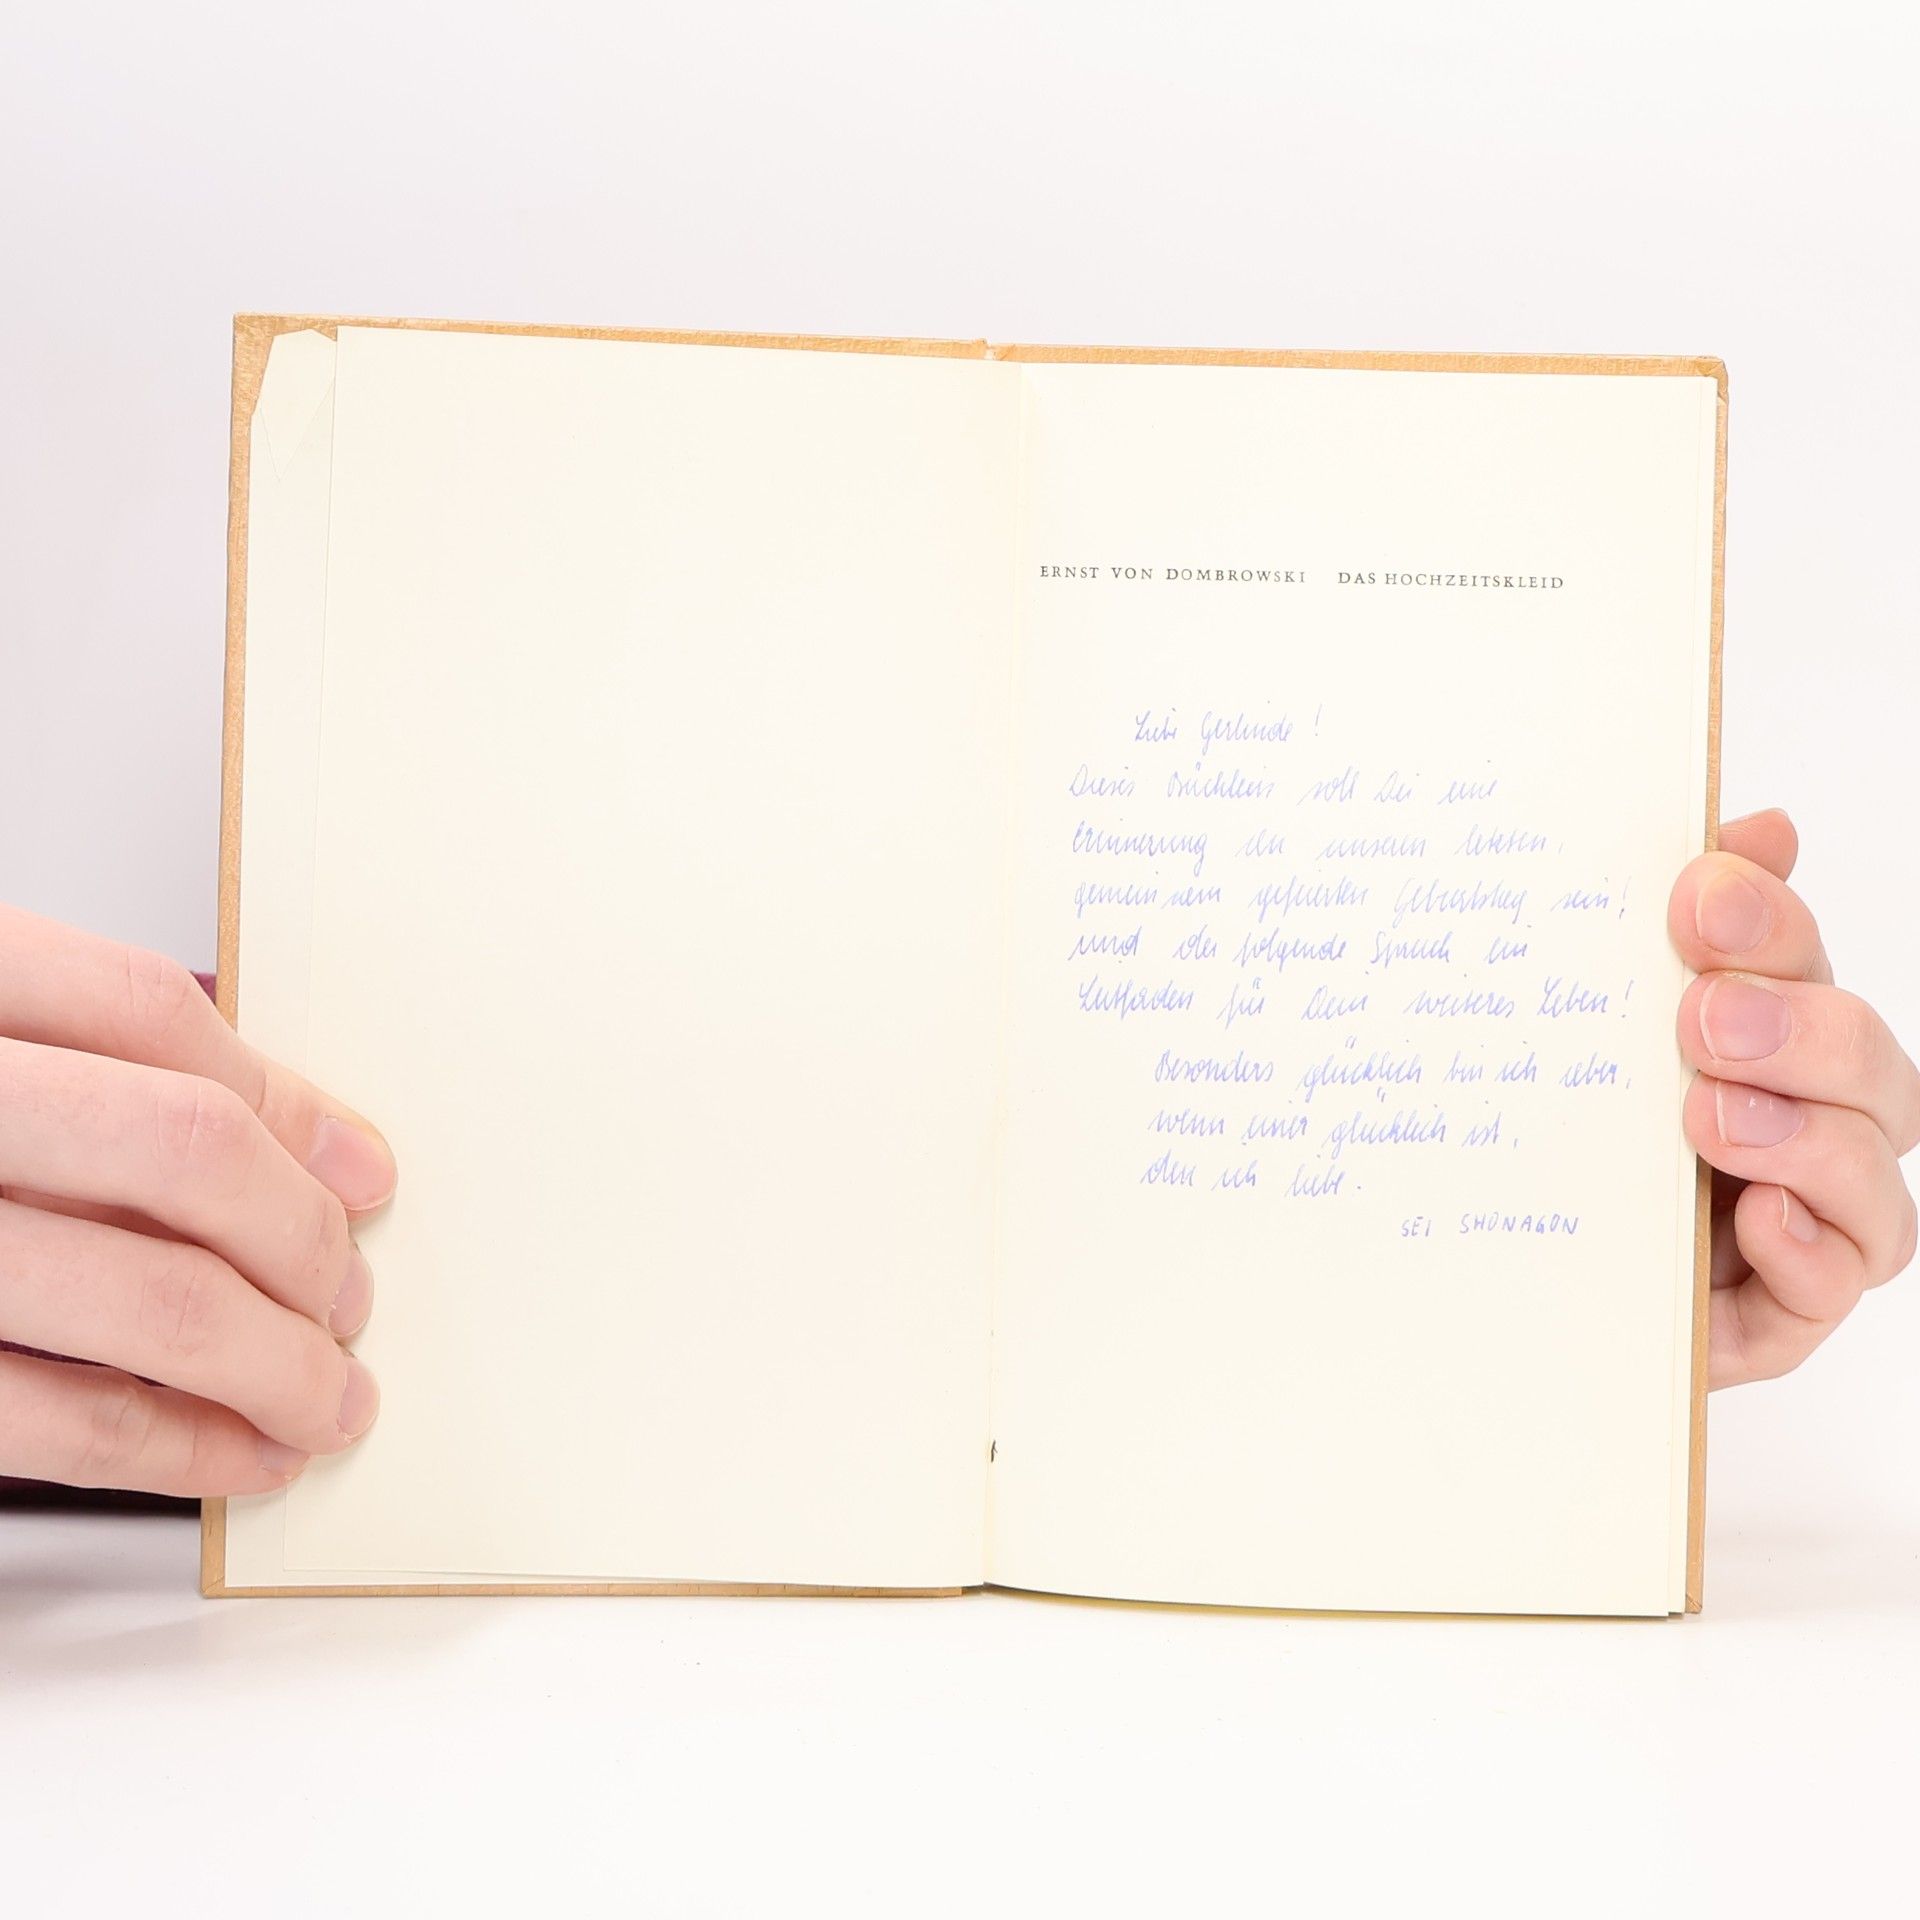 ERNST VON DOMBROWSKI DAS HOCHZEITSKLEID
Liebe Gerlinde!
Dieses Büchlein soll Dir eine
Erinnerung an unseren letzten,
gemeinsam gefeierten Geburtstag sein!
und der folgende Spruch ein
Leitfaden für Dein weiteres Leben!
Besonders glücklich bin ich aber,
wenn einer glücklich ist,
den ich liebe.
SEI SHONAGON